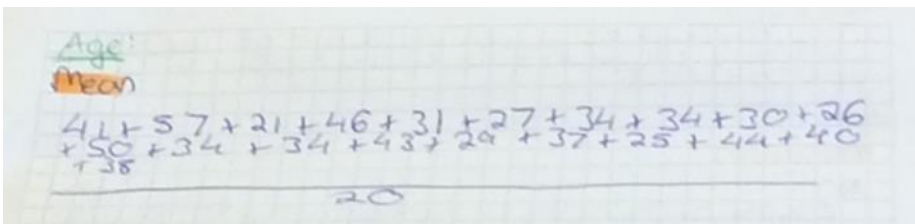 Age:
Mean
41+57+21+46+31+27+34+34+30+26
+50+34+34+43+29+37+25+44+40
+38
20